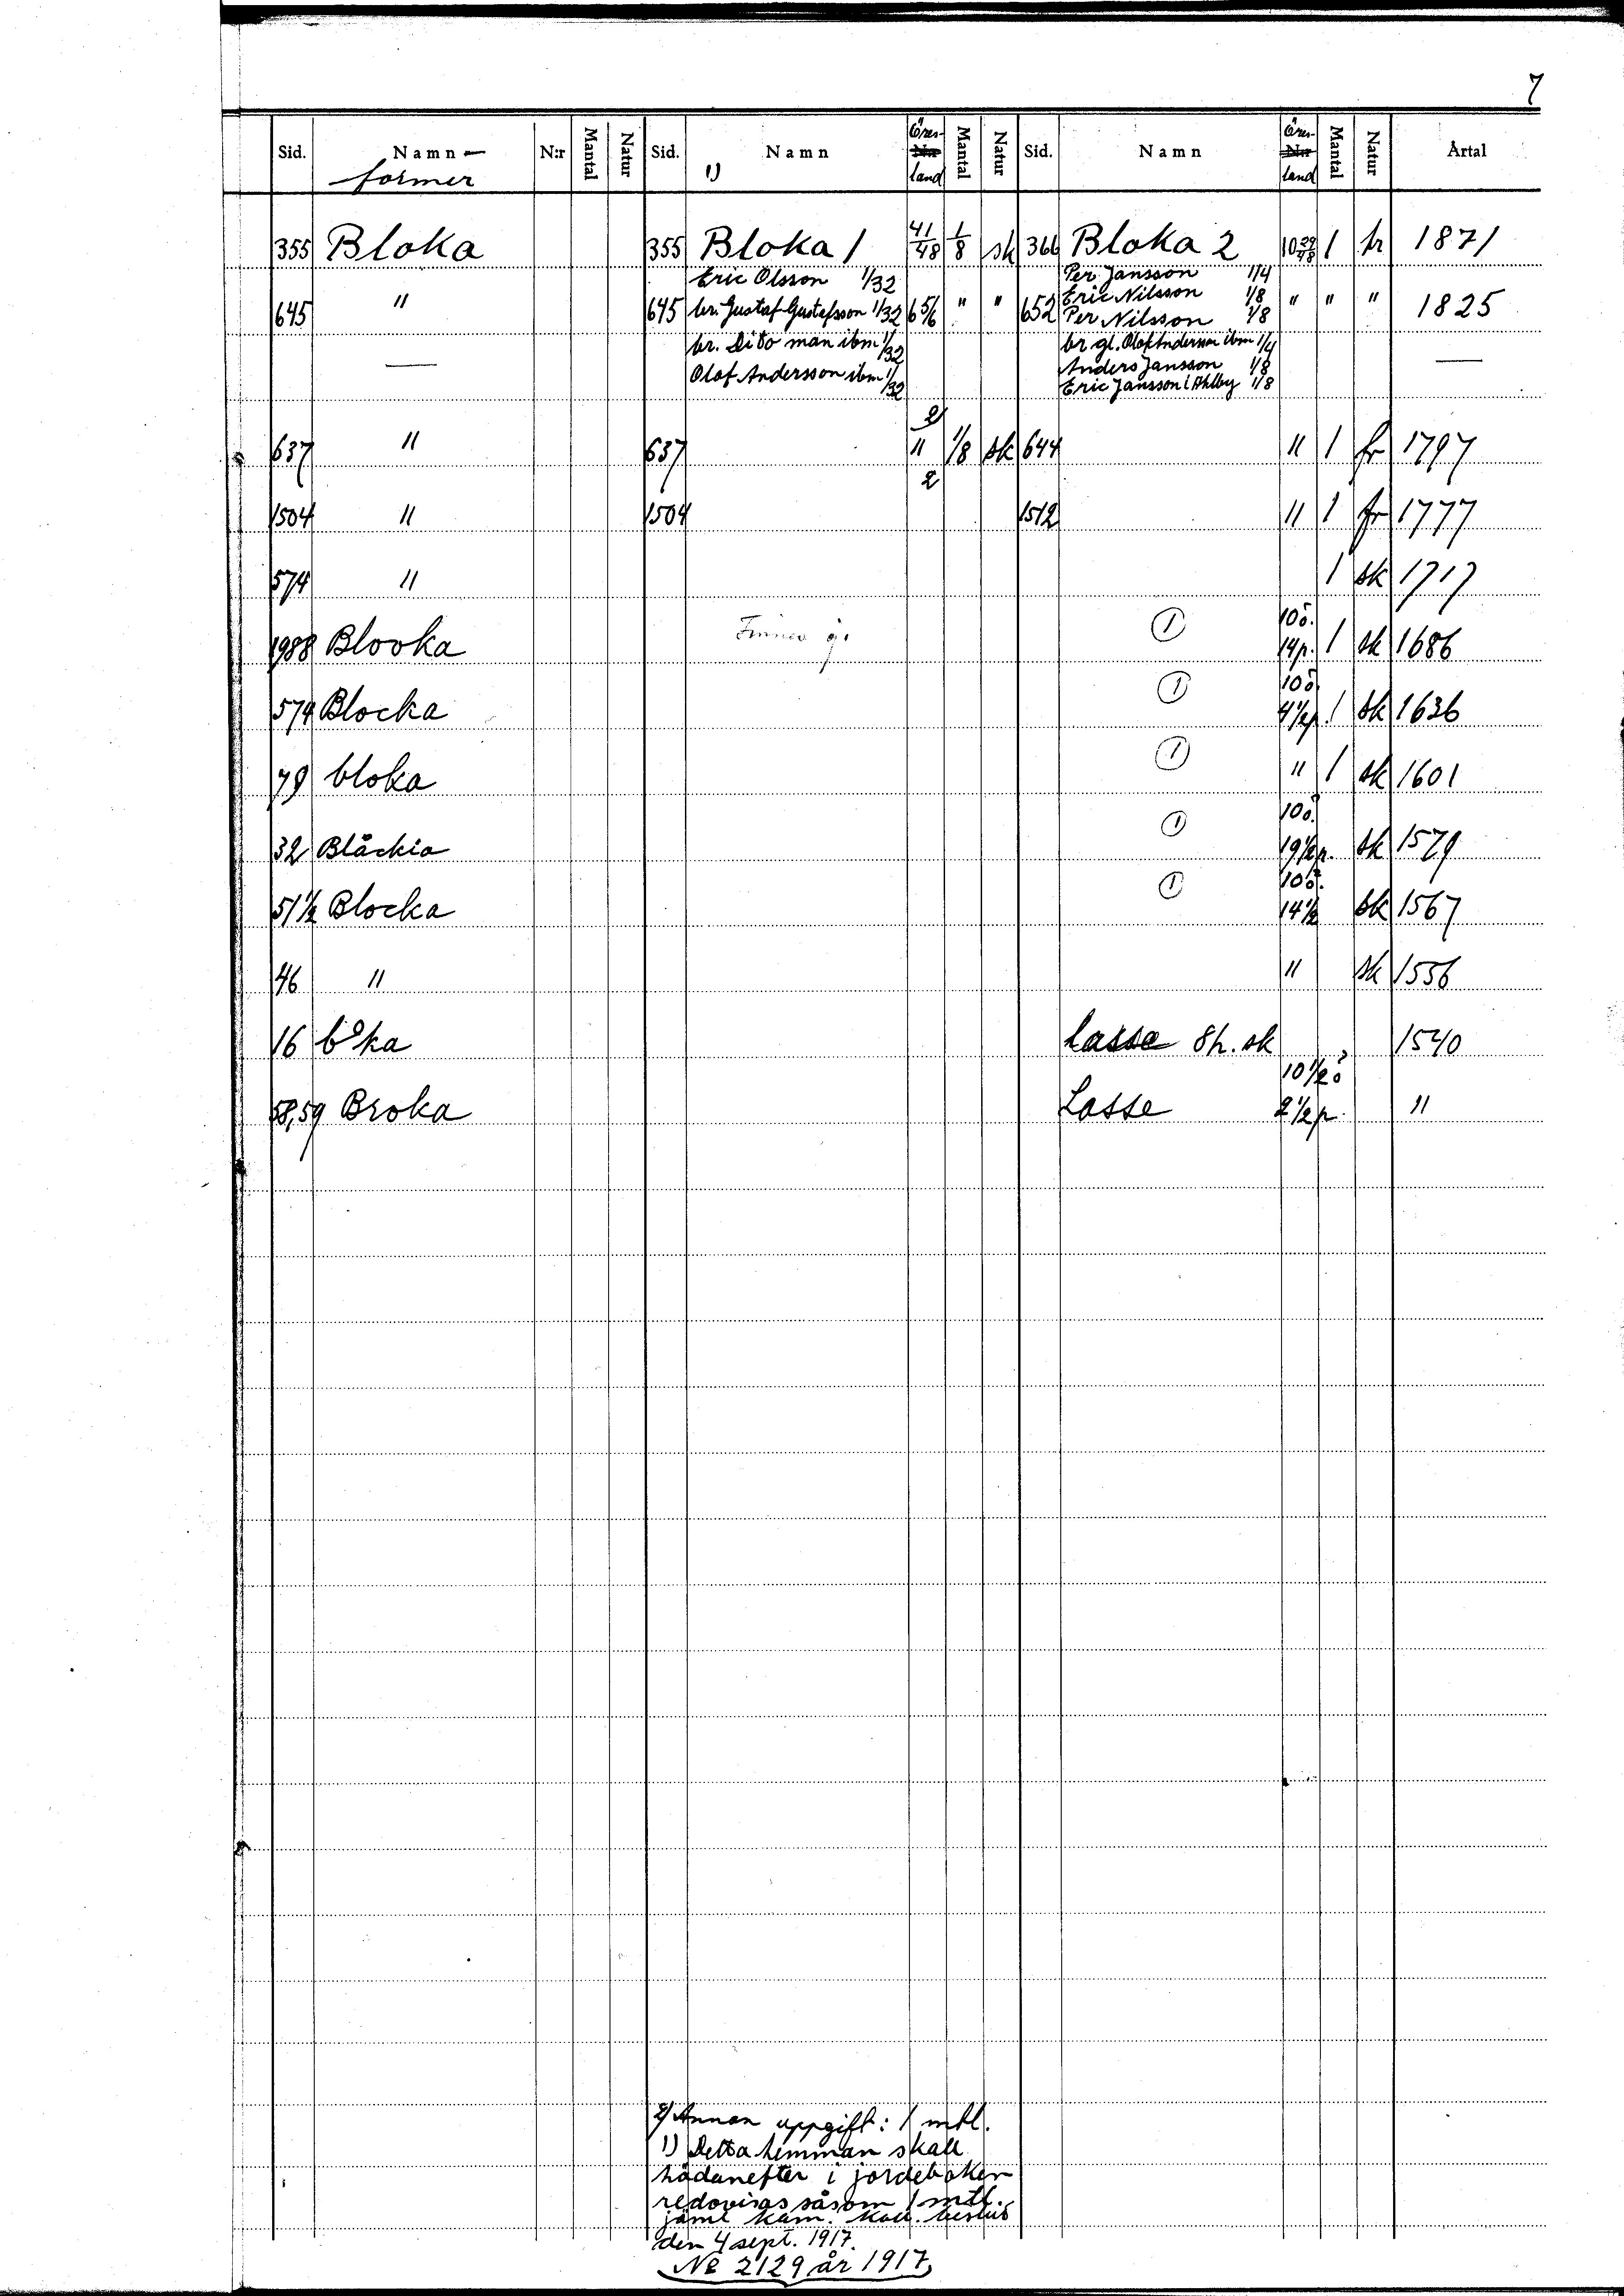 7
Sid. Namn- former N:r Mantal Natur Sid. 1) Namn Öres- N:r land Mantal Natur Sid. Namn Öres- N:r land Mantal Natur Årtal
355 Bloka 355 Bloka 1 41/48 1/8 sk 366 Bloka 2 10 29/48 1 fr 1871
Eric Olsson 1/32 Per Jansson 1/4
645 " 645 br. Gustaf Gustafsson 1/32 6 5/6 " " 652 Eric Nilsson 1/8 " " " 1825
Per Nilsson 1/8
br. Dito man ibm 1/32 br gl. Olof Andersson ibm 1/4
— Olof Andersson ibm 1/32 Anders Jansson 1/8 —
Eric Jansson i Ahlby 1/8
2)
637 " 637 " 1/8 sk 644 " 1 fr 1797
2
1504 " 1504 1512 " 1 fr 1777
574 " 1 sk 1717
1988 Blooka Finnes ej. 1 10ö. 14p. 1 sk 1686
574 Blocka 1 10ö. 4½p. 1 sk 1636
79 bloka 1 " 1 sk 1601
32 Blåckia 1 10ö. 19½p. sk 1579
51½ Blocka 1 10ö. 14½ sk 1567
46 " " sk 1556
16 boka Lasse 8p. sk 1540
58,59 Broka Lasse 10½ö 2½p. "
2) Annan uppgift: 1 mtl.
1) Detta hemman skall
hädanefter i jordeboken
redovisas såsom 1 mtl.
jäml kam. koll. beslut
den 4 sept. 1917.
No 2129 år 1917